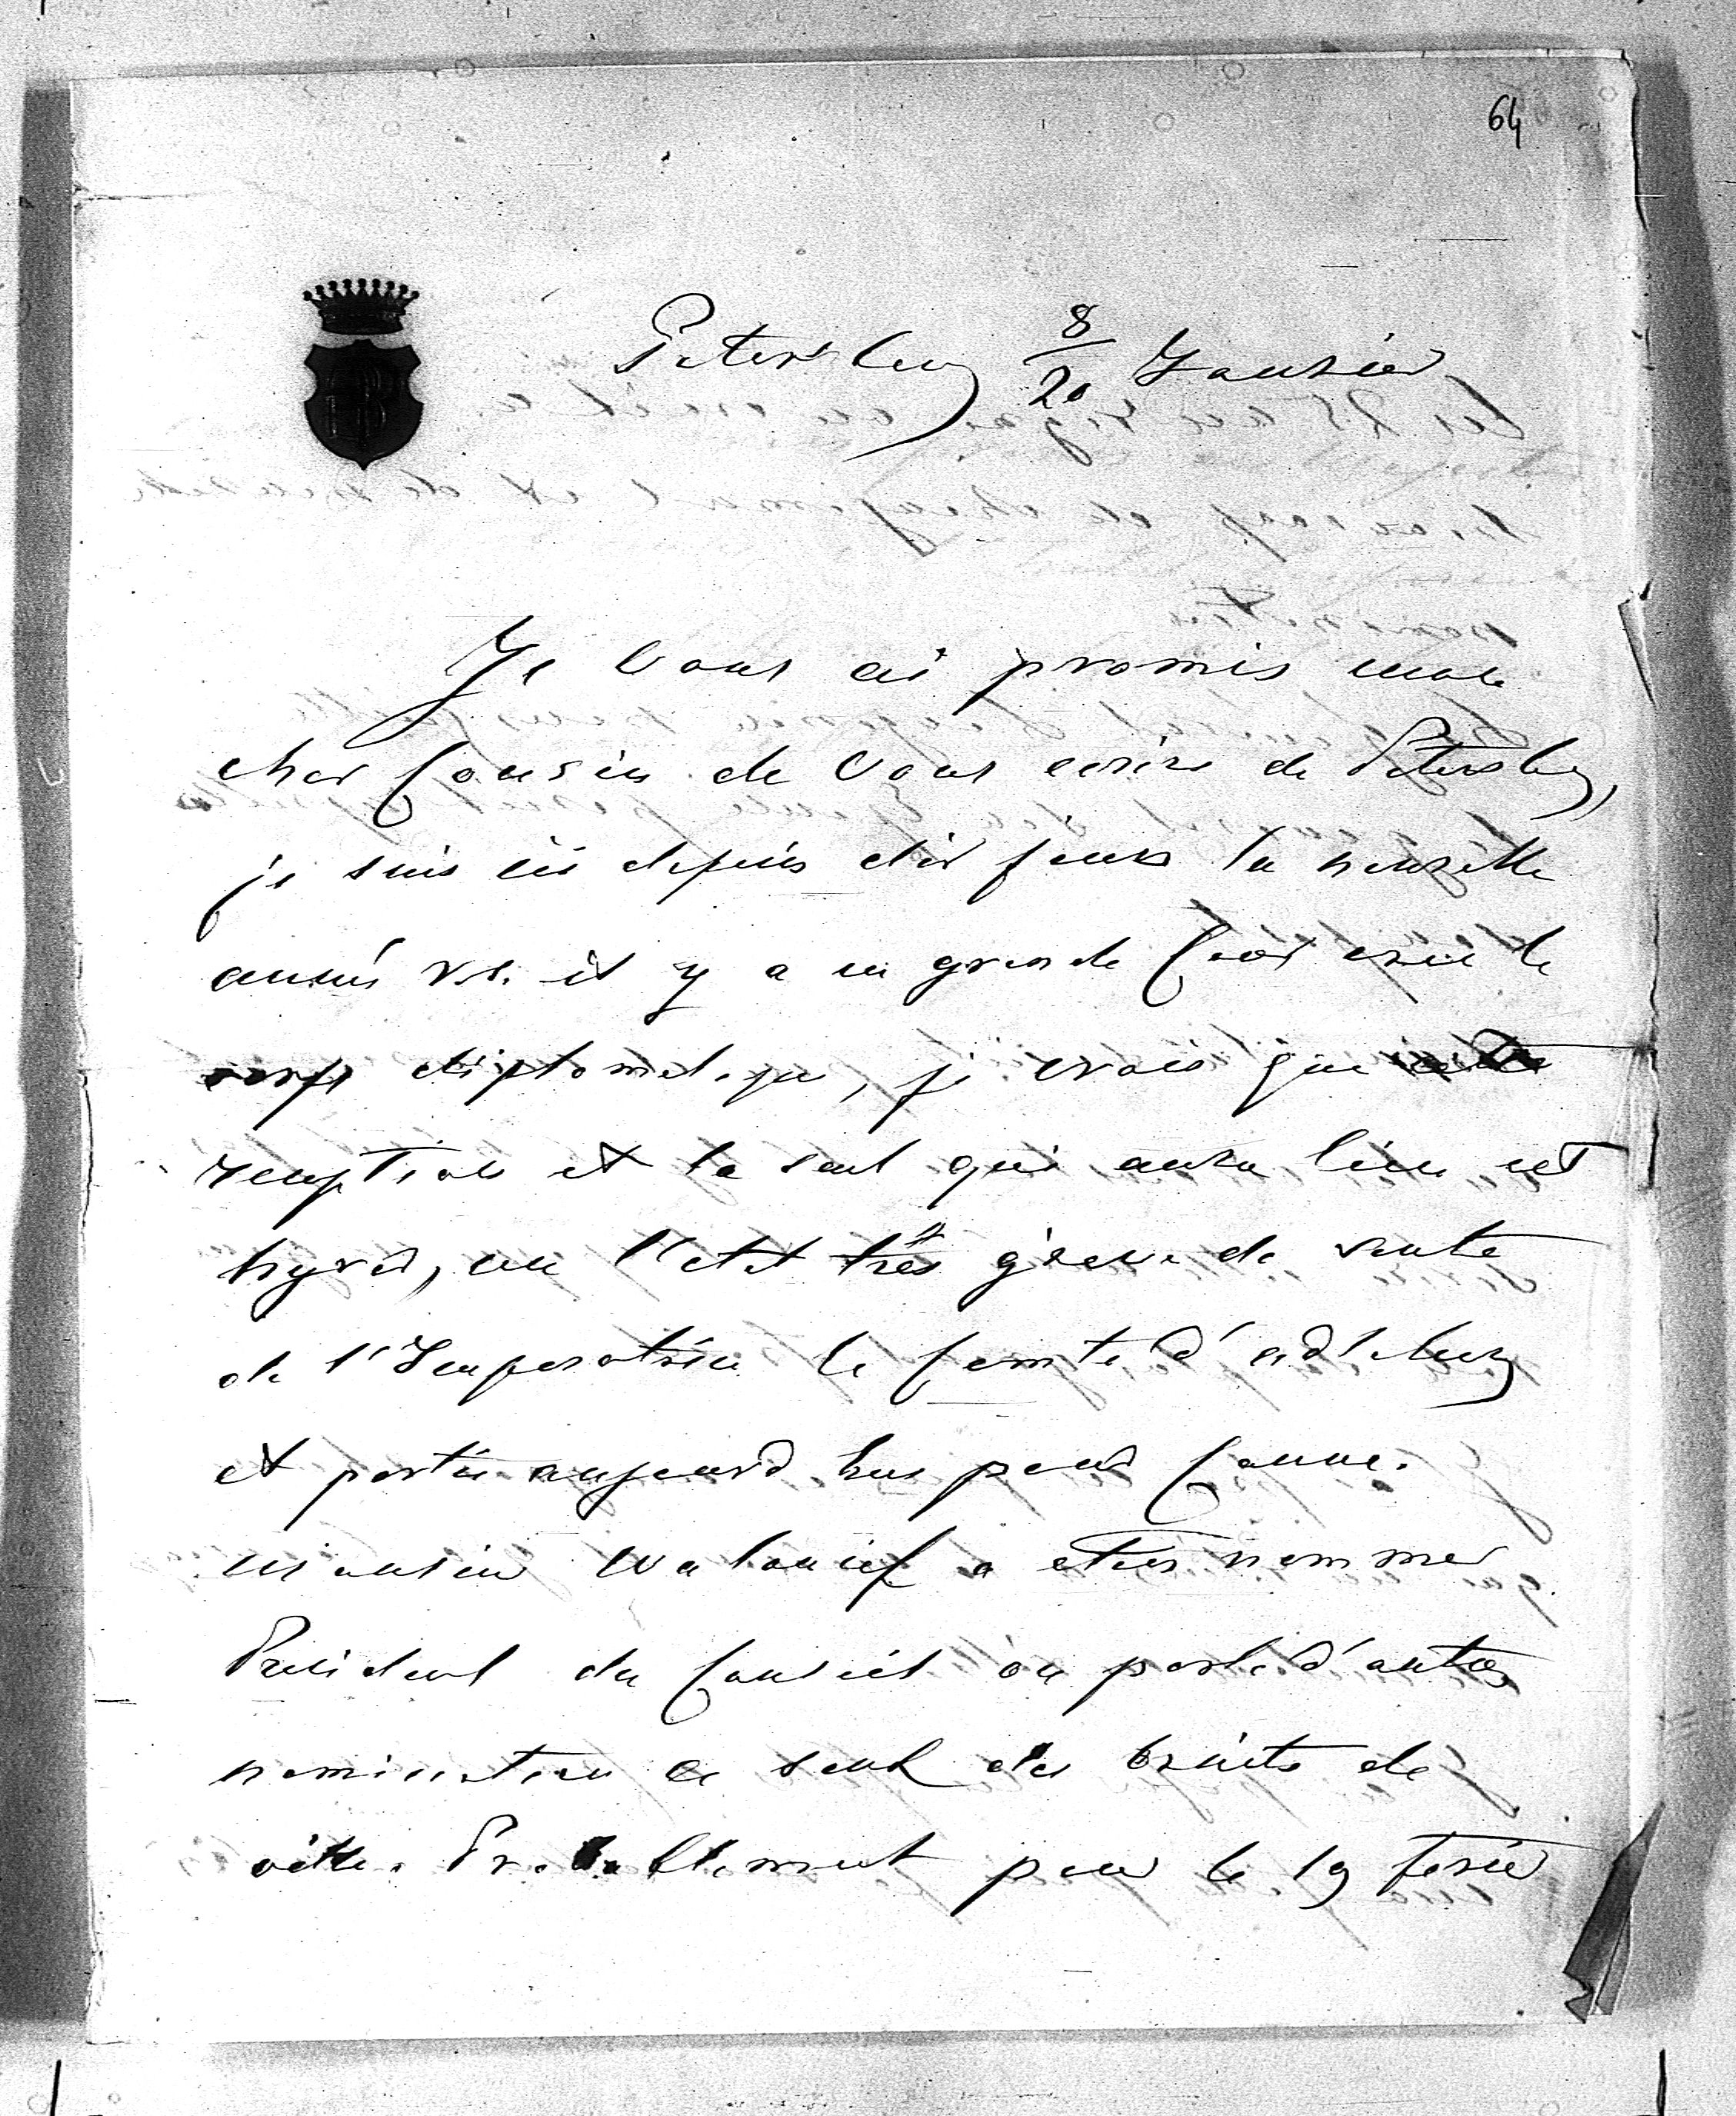 64
Petersburg 8/20 Janvier
Je Vous ai promis mon
cher Cousin de Vous ecrire de Petersburg,
je suis ici depuis dix jours la nouvelle
année r.s. il y a eu grande Cour avec le
corps diplomatique, je crois que cette
reception et la seul qui aura lieu cet
hyver, vu l'etat très grave de sante
de l'Imperatrice le Comte d'Adleberg
et partie aujourd'hui pour Canne.
Monsieur Walouief a etter nommer
President du Conseil on parle d'autres
nomination ce sont des bruits de
ville. Probablement pour le 19 fevrier